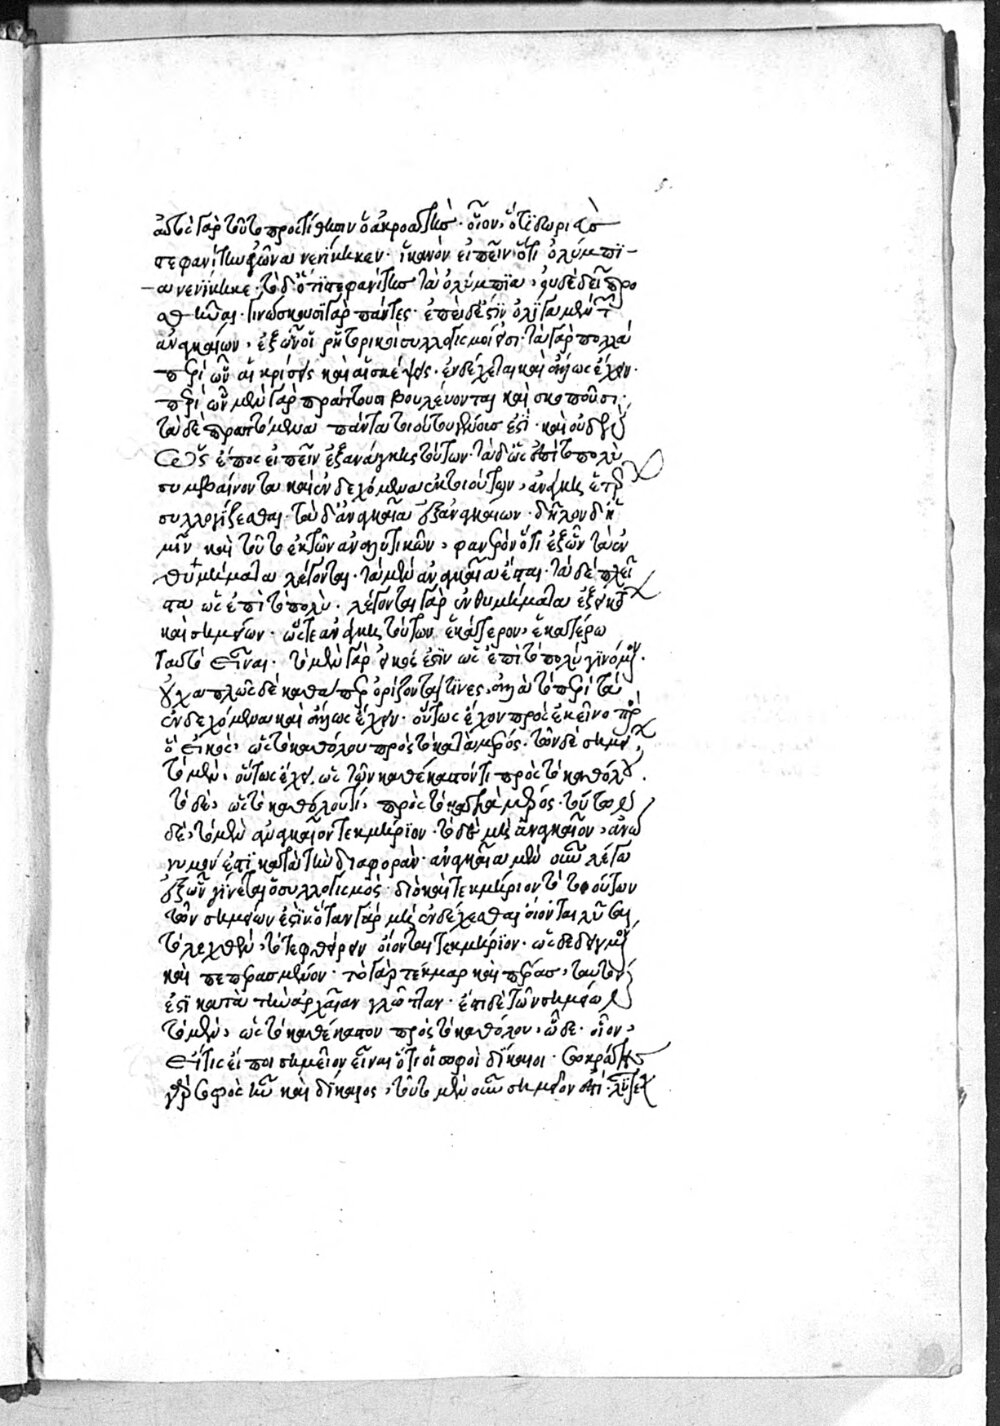 αὐτὸς γὰρ τοῦτο προστίθησιν ὁ ἀκροατὴς· οἷον, ὅτι δωριεὺς
στεφανίτην ἀγῶνα νενίκηκεν· ἱκανὸν εἰπεῖν ὅτι ὀλύμπι-
α νενίκηκε· τὸ δ' ὅτι στεφανίτης τὰ ὀλύμπια, οὐδὲ δεῖ προσ
θεῖναι· γινώσκουσι γὰρ πάντες· ἐπεὶ δ' ἐστὶν ὀλίγα μὲν τῶν
ἀναγκαίων, ἐξ ὧν οἱ ῥητορικοὶ συλλογισμοί εἰσι· τὰ γὰρ πολλὰ
περὶ ὧν αἱ κρίσεις καὶ αἱ σκέψεις· ἐνδέχεται καὶ ἄλλως ἔχειν·
περὶ ὧν μὲν γὰρ πράττουσι βουλεύονται καὶ σκοποῦσι·
τὰ δὲ πραττόμενα πάντα τοιούτου γένους ἐστὶ· καὶ οὐδὲν
ὡς ἔπος εἰπεῖν ἐξ ἀνάγκης τούτων· τὰ δ' ὡς ἐπὶ τὸ πολὺ
συμβαίνοντα καὶ ἐνδεχόμενα ἐκ τοιούτων, ἀνάγκη ἑτέρων
συλλογίζεσθαι· τὰ δ' ἀναγκαῖα ἐξ ἀναγκαίων· δῆλον δ' ἡ
μῖν καὶ τοῦτο ἐκ τῶν ἀναλυτικῶν, φανερὸν ὅτι ἐξ ὧν τὰ ἐν
θυμήματα λέγονται· τὰ μὲν ἀναγκαῖα ἔσται· τὰ δὲ πλεῖ
στα ὡς ἐπὶ τὸ πολὺ· λέγονται γὰρ ἐνθυμήματα ἐξ εἰκότων
καὶ σημείων· ὥστε ἀνάγκη τούτων ἑκάτερον, ἑκατέρω
ταυτὸ εἶναι· τὸ μὲν γὰρ εἰκός ἐστιν ὡς ἐπὶ τὸ πολὺ γινόμενον·
οὐχ ἁπλῶς δὲ καθάπερ ὁρίζονταί τινες, ἀλλὰ τὸ περὶ τὰ
ἐνδεχόμενα καὶ ἄλλως ἔχειν· οὕτως ἔχον πρὸς ἐκεῖνο πρὸς
ὃ εἰκὸς, ὡς τὸ καθόλου πρὸς τὸ κατὰ μέρος· τῶν δὲ σημείων,
τὸ μὲν, οὕτως ἔχει, ὡς τῶν καθέκαστόν τι πρὸς τὸ καθόλου·
τὸ δὲ, ὡς τὸ καθόλου τι, πρὸς τὸ κατὰ μέρος· τούτων
δὲ, τὸ μὲν ἀναγκαῖον τεκμήριον· τὸ δὲ μὴ ἀναγκαῖον, ἀνώ
νυμόν ἐστι κατὰ τὴν διαφορὰν· ἀναγκαῖα μὲν οὖν λέγω
ἐξ ὧν γίνεται ὁ συλλογισμὸς· διὸ καὶ τεκμήριον τὸ τοιοῦτον
τῶν σημείων ἐστὶν· ὅταν γὰρ μὴ ἐνδέχεσθαι οἴονται λῦσαι
τὸ λεχθὲν, τότε φέρειν οἴονται τεκμήριον· ὡς δεδειγμένον
καὶ πεπερασμένον· τὸ γὰρ τέκμαρ καὶ πέρας, ταυτόν
ἐστι κατὰ τὴν ἀρχαίαν γλῶτταν· ἔστι δὲ τῶν σημείων
τὸ μὲν, ὡς τὸ καθέκαστον πρὸς τὸ καθόλου, ὧδε· οἷον,
εἴ τις εἴποι σημεῖον εἶναι ὅτι οἱ σοφοὶ δίκαιοι· σωκράτης
γὰρ σοφὸς ἦν καὶ δίκαιος, τοῦτο μὲν οὖν σημεῖον ἐστί·